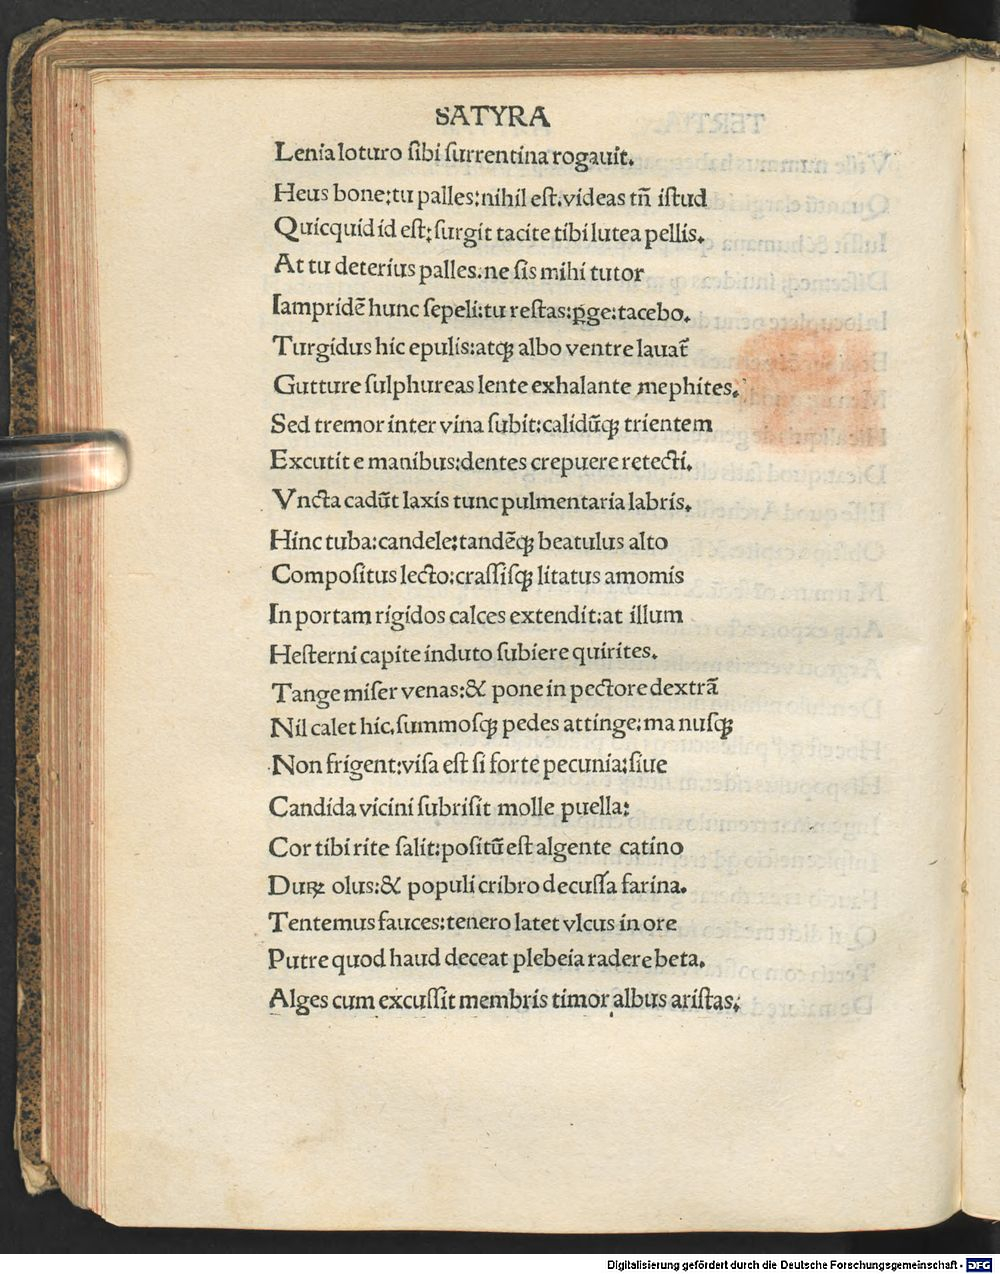 SATYRA
Lenia loturo ſibi ſurrentina rogauit.
Heus bone:tu palles:nihil eſt.videas tñ iſtud
Quicquid id eſt:ſurgit tacite tibi lutea pellis.
At tu deterius palles.ne ſis mihi tutor
Iampridē hunc ſepeli:tu reſtas:ꝑge:tacebo.
Turgidus hic epulis:atqꝫ albo ventre lauat̄
Gutture ſulphureas lente exhalante mephites.
Sed tremor inter vina ſubit:calidūqꝫ trientem
Excutit e manibus:dentes crepuere retecti.
Vncta cadūt laxis tunc pulmentaria labris.
Hinc tuba:candele:tandēqꝫ beatulus alto
Compoſitus lecto:craſſiſqꝫ litatus amomis
In portam rigidos calces extendit:at illum
Heſterni capite induto ſubiere quirites.
Tange miſer venas:& pone in pectore dextrā
Nil calet hic.ſummoſqꝫ pedes attinge:manuſqꝫ
Non frigent:viſa eſt ſi forte pecunia:ſiue
Candida vicini ſubriſit molle puella:
Cor tibi rite ſalit:poſitū eſt algente catino
Duꝝ olus:& populi cribro decuſſa farina.
Tentemus fauces:tenero latet vlcus in ore
Putre quod haud deceat plebeia radere beta.
Alges cum excuſſit membris timor albus ariſtas.
Digitalisierung gefördert durch die Deutsche Forschungsgemeinschaft - DFG